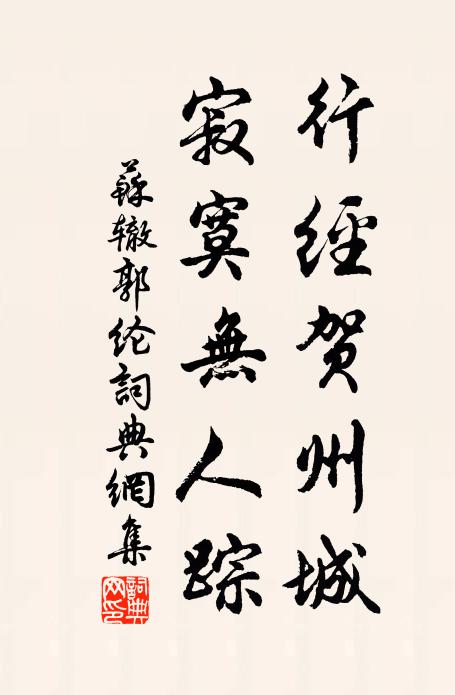 行經贺州城
寂寞無人踪
蘇辙郭纶詞典網集
詞典网印